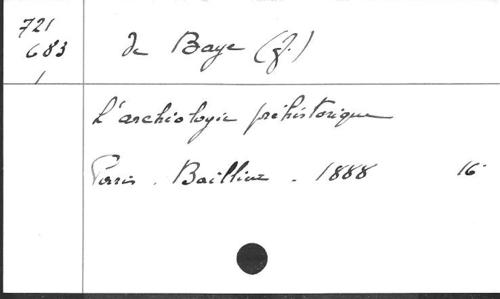 721
683
1
de Baye (J.)
L'archéologie préhistorique
Paris. Baillière. 1888 16°